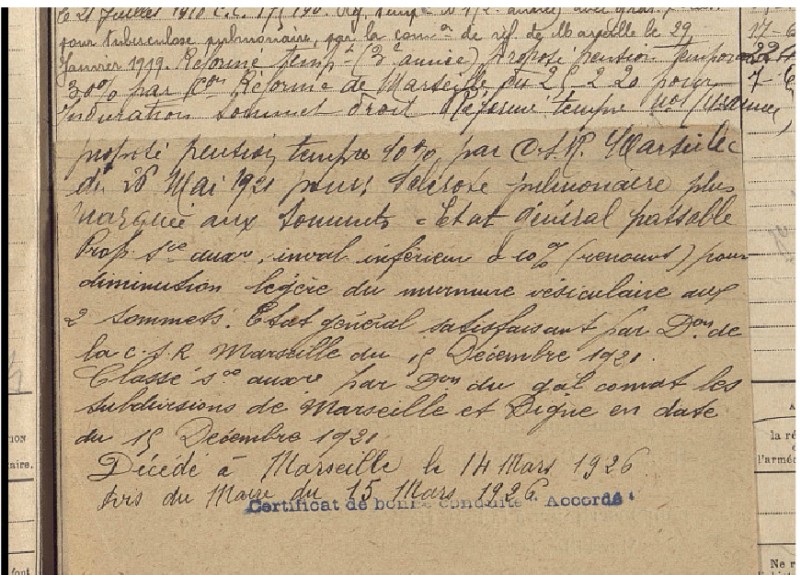 le 21 Juillet 1918 C.C.
pour tuberculose pulmonaire, par la comon de réf. de Marseille le 29
17-6
Janvier 1919. Réformé tempre (3e année) Proposé pension temporaire
30% par Con Réforme de Marseille du 25-2-20 pour
7-6
Induration sommet droit Réformé tempre No1
proposé pension tempre 10% par C.S.R. Marseille
du 28 Mai 1921 pour Sclérose pulmonaire plus
marquée aux sommets - Etat général passable
Propé sce auxre, inval. inférieur à 10% (renouvt) pour
diminution légère du murmure vésiculaire aux
2 sommets. Etat général satisfaisant par Don de
la C.S.R. Marseille du 15 Décembre 1921.
Classé sce auxre par Don du gal comat les
subdivsions de Marseille et Digne en date
du 15 Décembre 1921
Décédé à Marseille le 14 Mars 1926
Avis du Maire du 15 Mars 1926.
Certificat de bonne conduite "Accordé"
ion
aire.
font
A
la ré
l'armée
Ne r